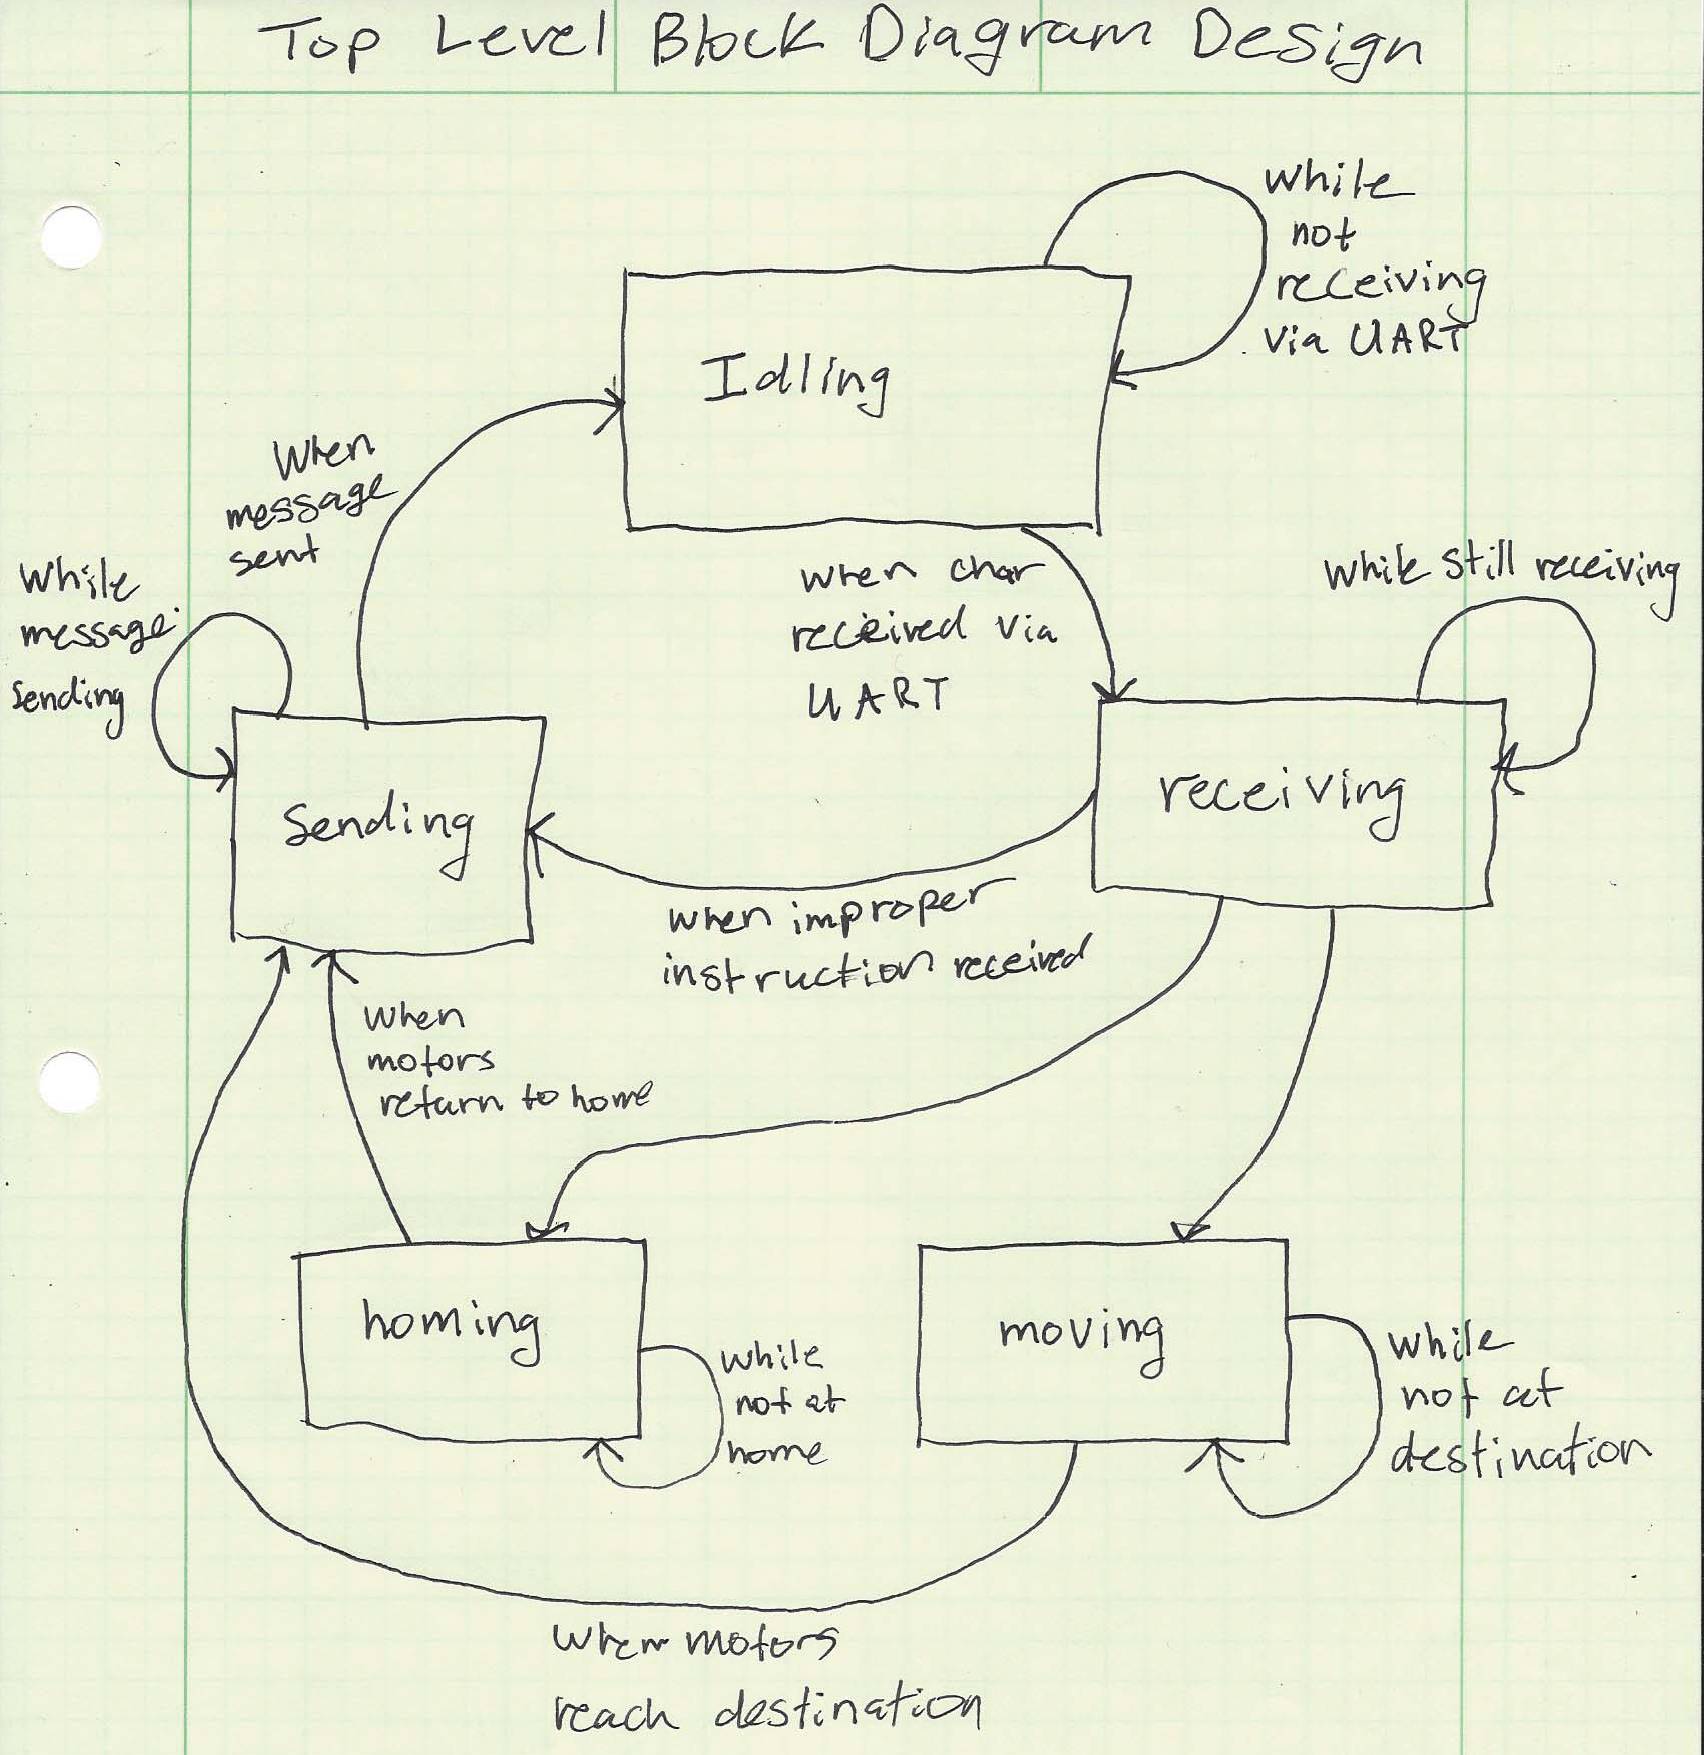 Top Level Block Diagram Design
while
not
receiving
via UART
Idling
When
message
sent
while
message
sending
when char
received via
UART
while still receiving
Sending
receiving
when improper
instruction received
when
motors
return to home
homing
while
not at
home
moving
while
not at
destination
when motors
reach destination